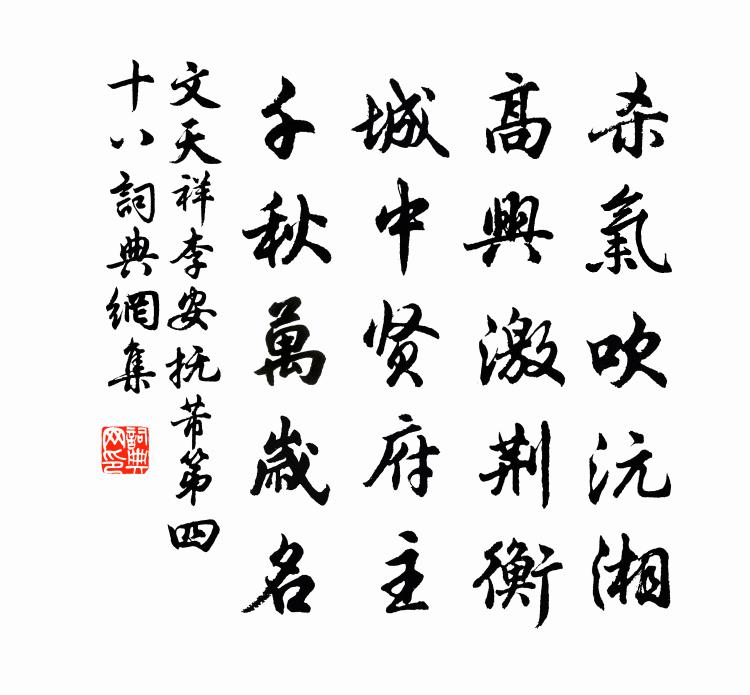 杀氣吹沅湘
高興激荆衡
城中贤府主
千秋萬歳名
文天祥李安抚芾第四
十八詞典網集
詞典网印